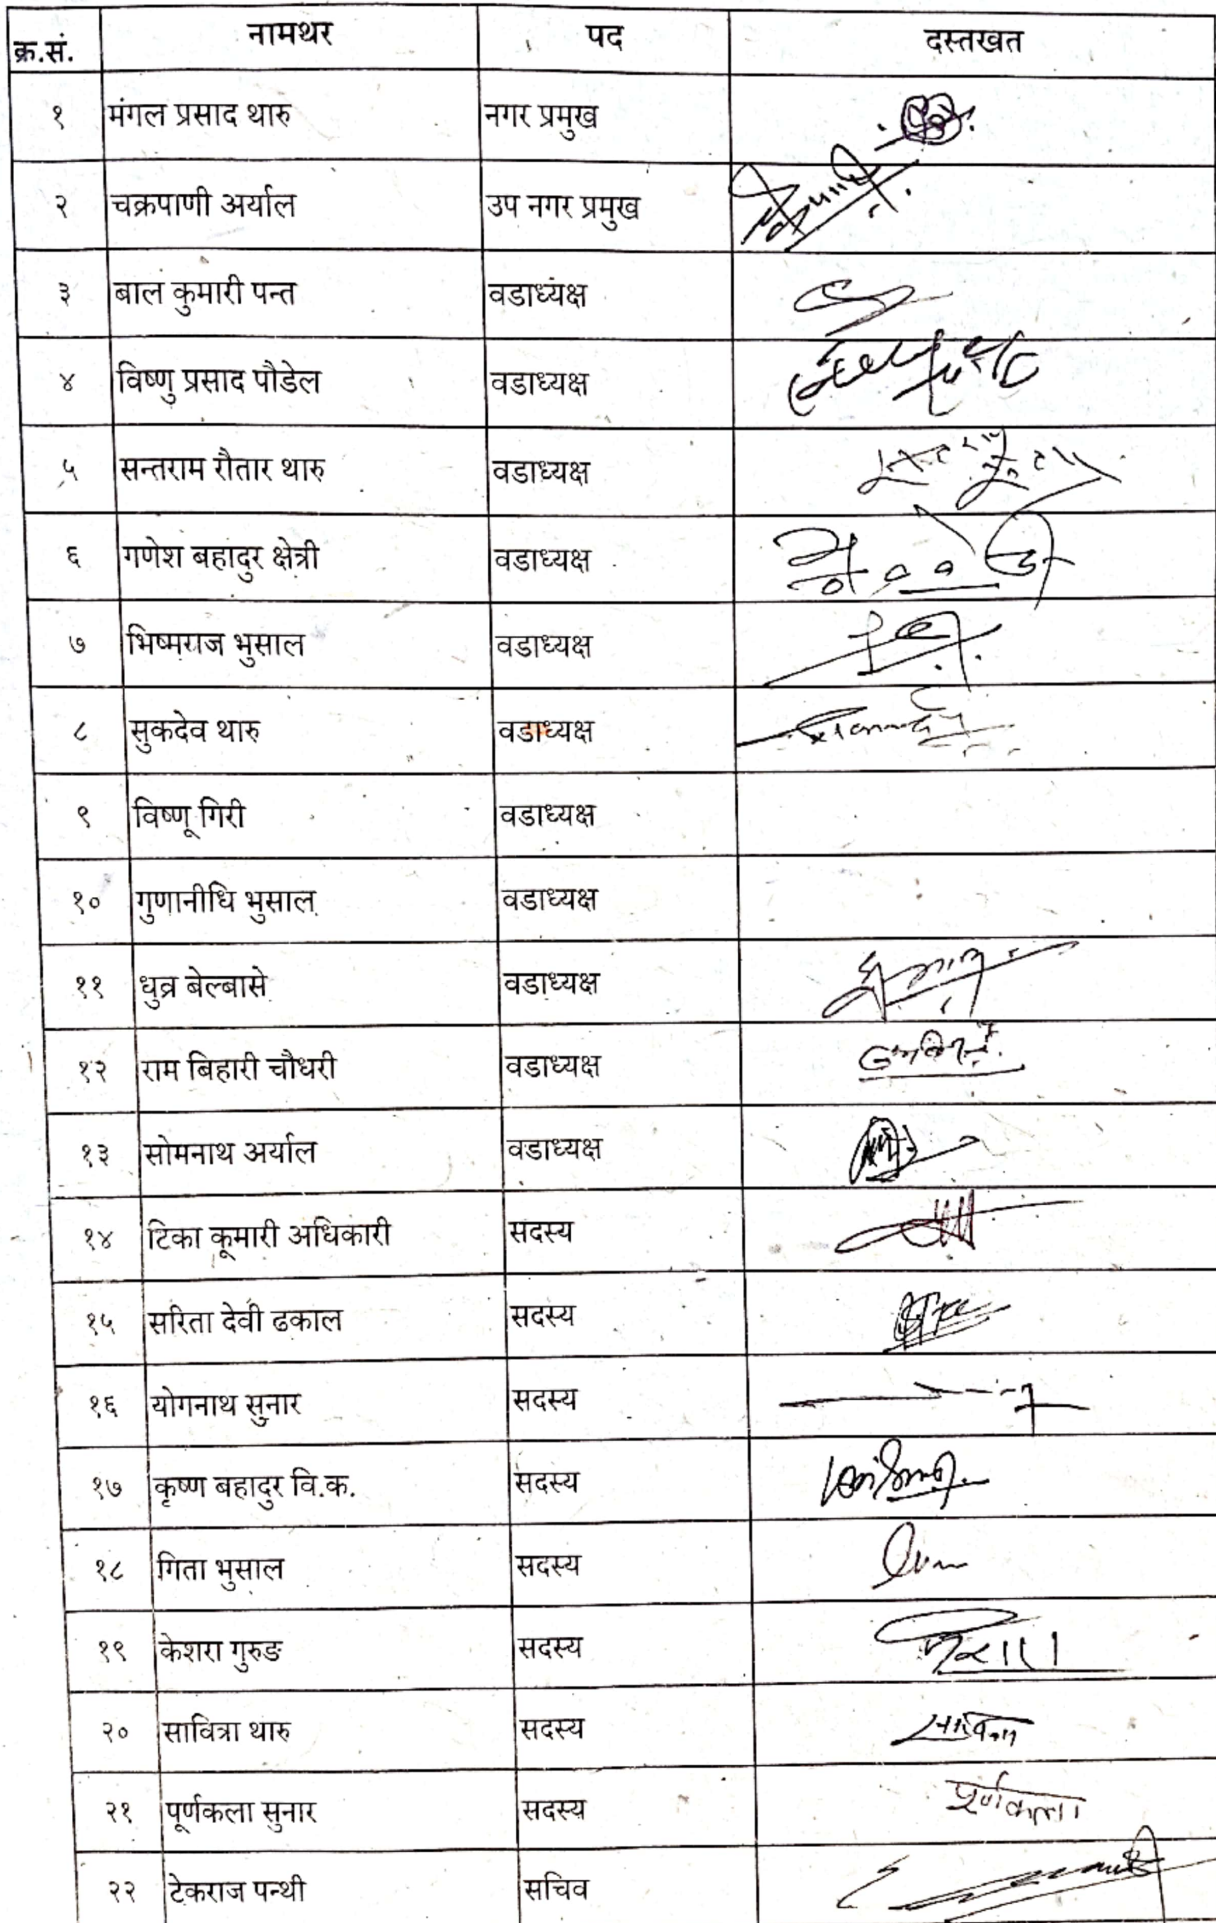 क्र.सं. नामथर पद दस्तखत
१ मंगल प्रसाद थारु नगर प्रमुख
२ चक्रपाणी अर्याल उप नगर प्रमुख
३ बाल कुमारी पन्त वडाध्यक्ष
४ विष्णु प्रसाद पौडेल वडाध्यक्ष
५ सन्तराम रौतार थारु वडाध्यक्ष
६ गणेश बहादुर क्षेत्री वडाध्यक्ष
७ भिष्मराज भुसाल वडाध्यक्ष
८ सुकदेव थारु वडाध्यक्ष
९ विष्णू गिरी वडाध्यक्ष
१० गुणानीधि भुसाल वडाध्यक्ष
११ धुव्र बेल्बासे वडाध्यक्ष
१२ राम बिहारी चौधरी वडाध्यक्ष
१३ सोमनाथ अर्याल वडाध्यक्ष
१४ टिका कूमारी अधिकारी सदस्य
१५ सरिता देवी ढकाल सदस्य
१६ योगनाथ सुनार सदस्य
१७ कृष्ण बहादुर वि.क. सदस्य
१८ गिता भुसाल सदस्य
१९ केशरा गुरुङ सदस्य
२० सावित्रा थारु सदस्य
२१ पूर्णकला सुनार सदस्य पूर्णकला
२२ टेकराज पन्थी सचिव